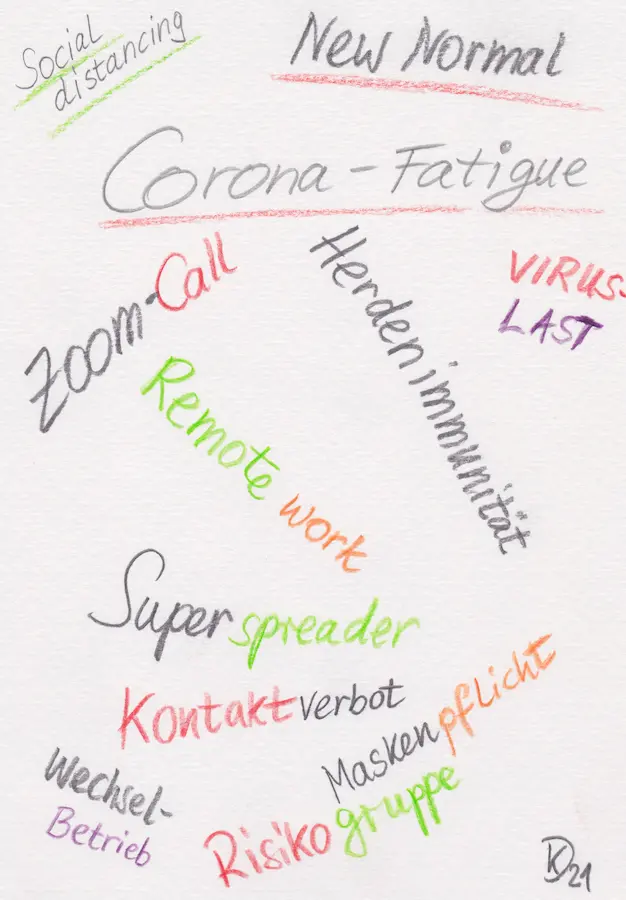 Social
distancing
New Normal
Corona-Fatigue
Zoom-Call
Herdenimmunität
VIRUS-
LAST
Remote work
Superspreader
Kontaktverbot
Maskenpflicht
Wechsel-
Betrieb
Risikogruppe
KD21